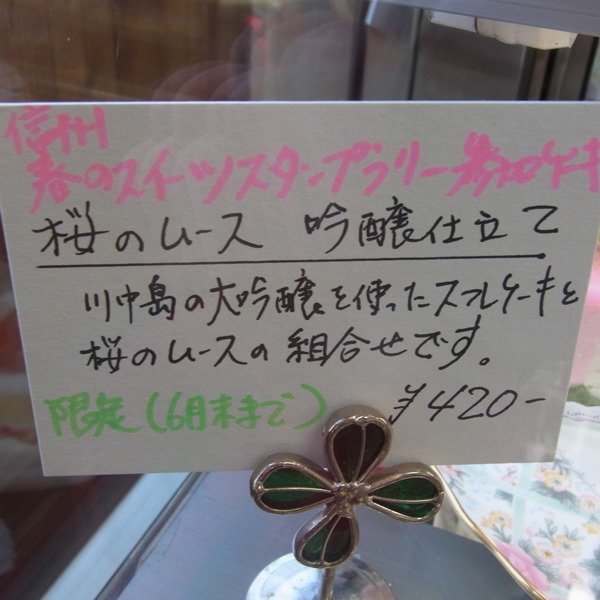 信州
春のスイーツスタンプラリー参加ケーキ
桜のムース 吟醸仕立て
川中島の大吟醸を使ったスフレケーキと
桜のムースの組合せです。
限定(6月末まで)
¥420-